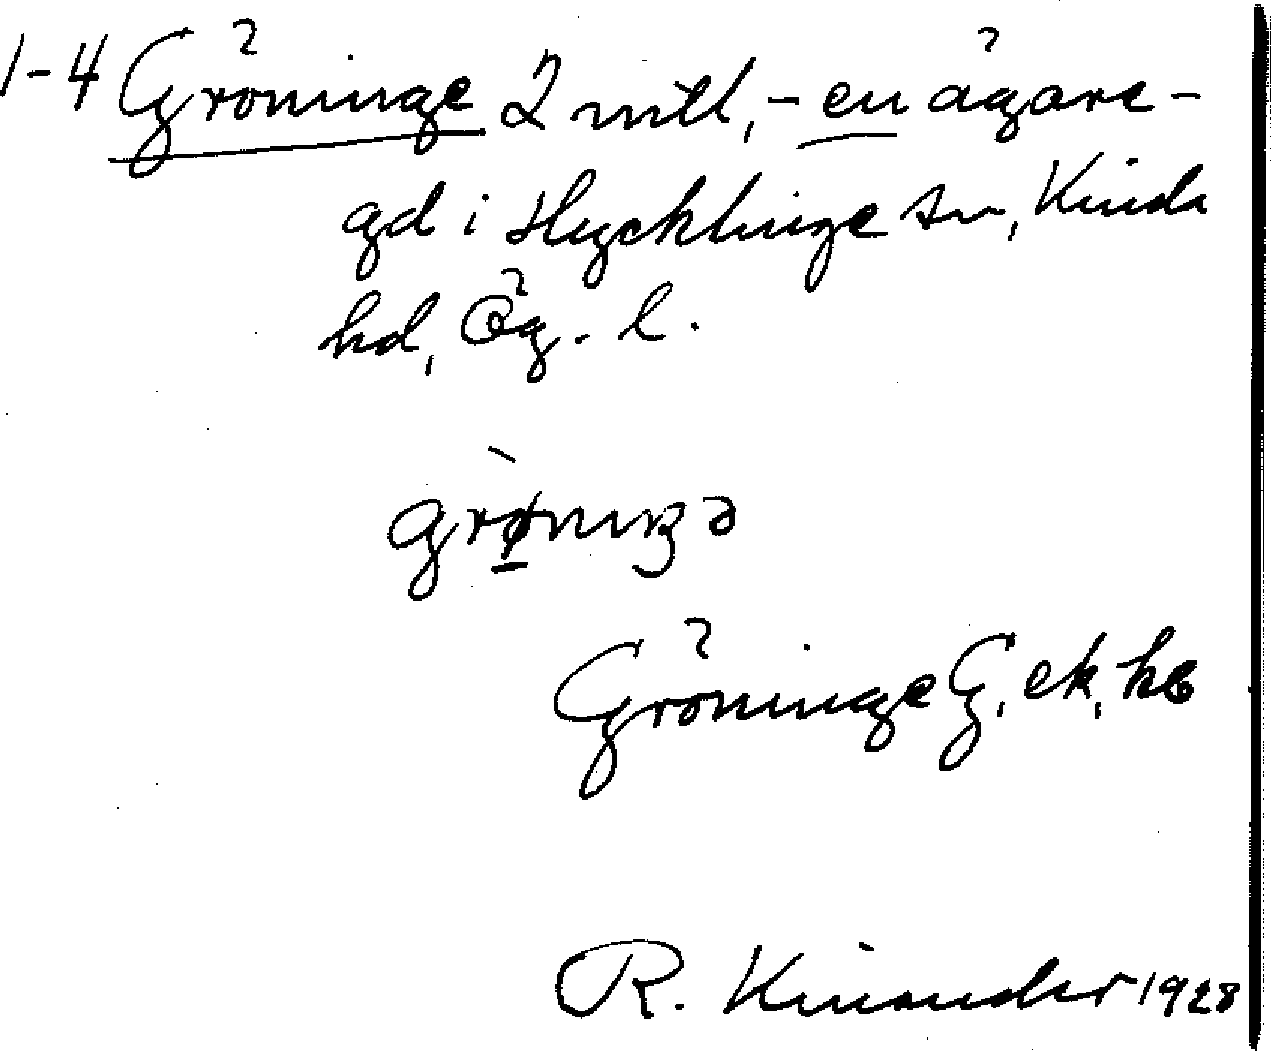 1-4 Gröninge 2 mtl, - en ägare -
gd i Hycklinge sn, Kinda
hd, Ög. l.
grø̀niŋə
Gröninge G, ek, kb
R. Kinander 1928